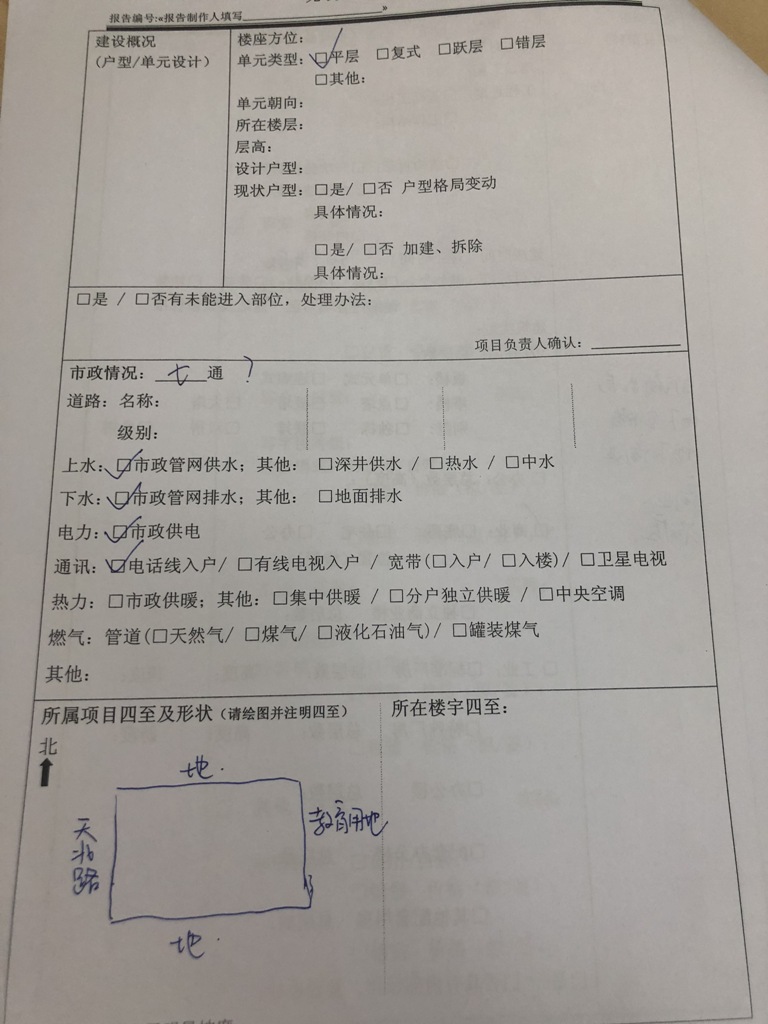 报告编号:«报告制作人填写__________»
建设概况
(户型/单元设计)
楼座方位:
单元类型: ☑平层 □复式 □跃层 □错层
□其他:
单元朝向:
所在楼层:
层高:
设计户型:
现状户型: □是/ □否 户型格局变动
具体情况:
□是/ □否 加建、拆除
具体情况:
□是 / □否有未能进入部位, 处理办法:
项目负责人确认: __________
市政情况: 七 通 ?
道路: 名称:
级别:
上水: ☑市政管网供水; 其他: □深井供水 / □热水 / □中水
下水: ☑市政管网排水; 其他: □地面排水
电力: ☑市政供电
通讯: ☑电话线入户/ □有线电视入户 / 宽带(□入户/ □入楼)/ □卫星电视
热力: □市政供暖; 其他: □集中供暖 / □分户独立供暖 / □中央空调
燃气: 管道(□天然气/ □煤气/ □液化石油气)/ □罐装煤气
其他:
所属项目四至及形状 (请绘图并注明四至)
北
地.
天北路
教育用地
地.
所在楼宇四至: